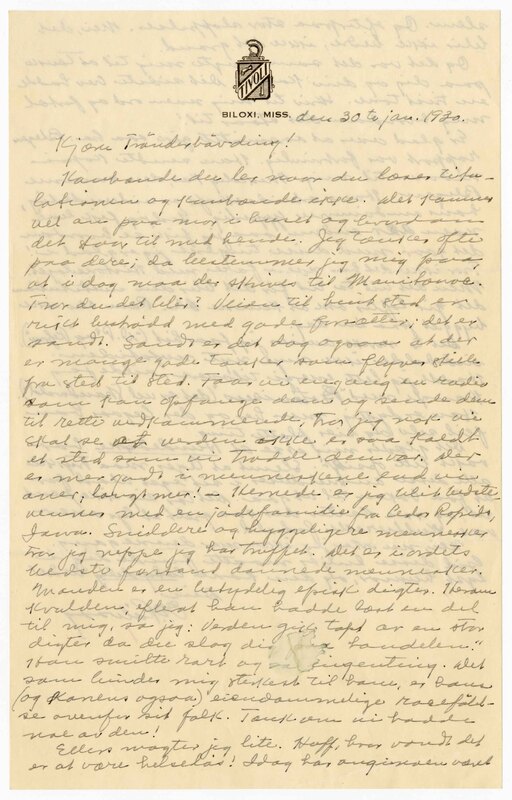 TIVOLI
BILOXI, MISS. den 30te jan. 1930.
Kjære Trønderhøvding!
Kanhænde du ler naar du læser titu-
lationen og kanhænde ikke. Det kommer
vel an paa mor i huset og hvordan
det staar til med hende. Jeg tænker ofte
paa dere; da bestemmer jeg mig paa,
at i dag maa der skrives til Manitowoc.
Tror du det blir? Veien til bent sted er
rikt bestrødd med gode forsetter; det er
sandt. Sandt er det dog ogsaa at der
er mange gode tanker som flyver stille
fra sted til sted. Faar vi engang en radio
som kan opfange dem og sende dem
til rette vedkommende, tror jeg nok vi
skal se at verden ikke er saa kaldt
et sted som vi trodde den var. Der
er mer godt i menneskene end vi
aner; langt mer! — Hernede er jeg blit bedste
venner med en jødefamilie fra Cedar Rapids,
Iowa. Snildere og hyggeligere mennesker
tror jeg neppe jeg har truffet. Det er i ordets
bedste forstand dannede mennesker.
Manden er en betydelig episk digter. Heromi
kvelden, efterat han hadde læst en del
til mig, sa jeg: Verden gik tapt av en stor
digter da du slog dig handelen."
Han smilte rart og ingenting. Det
som binder mig sterkest til ham, er hans
(og konens ogsaa) eiendommelige racefølel-
se overfor sit folk. Tænk om vi hadde
noe av den!
Ellers magter jeg lite. Huff, hvor vondt det
er at være helseløs! Idag har anginaen været